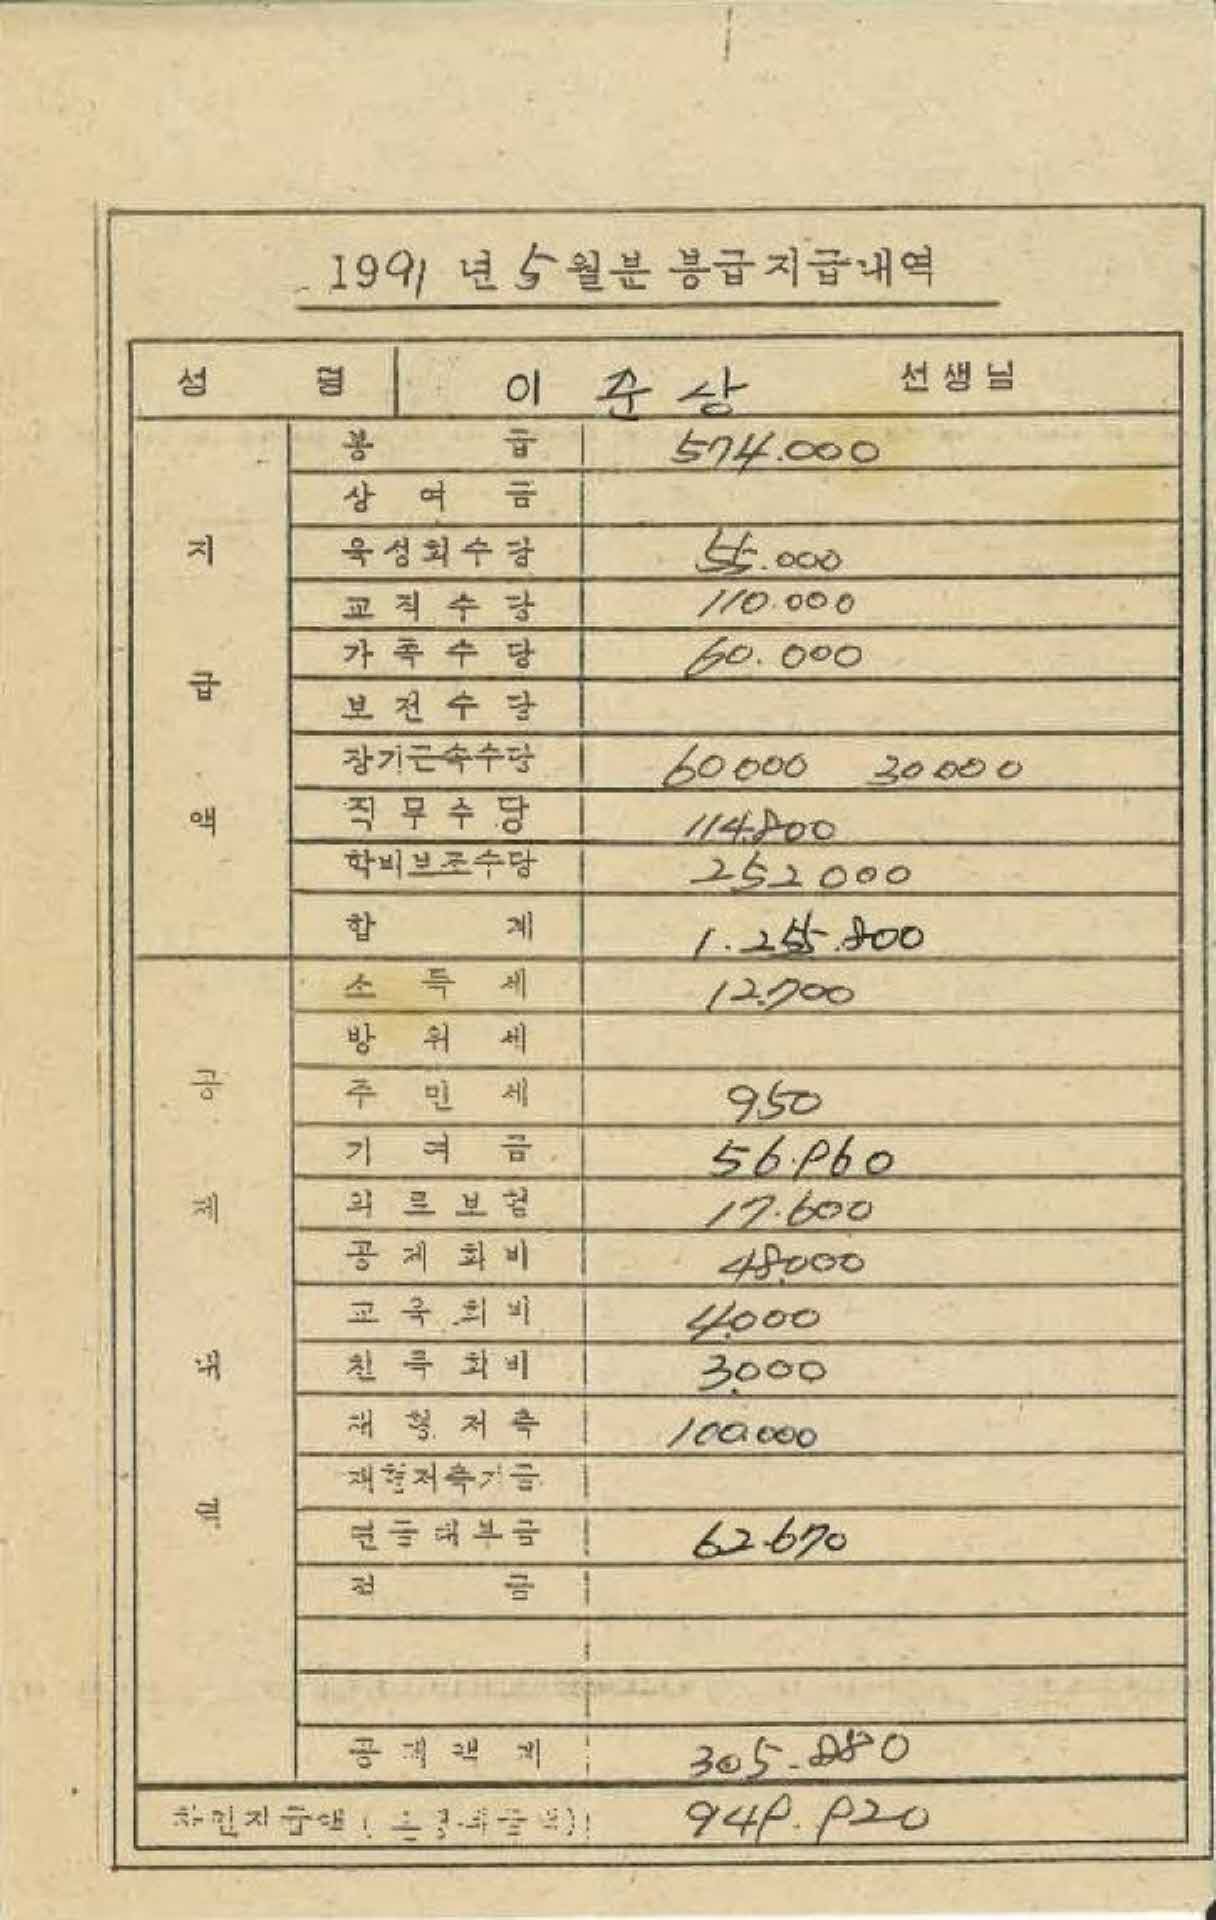 1991 년 5 월분 봉급지급내역
성 명 이 준 상 선생님
지 급 액
봉 급 574.000
상 여 금
육성회수당 55.000
교직수당 110.000
가족수당 60.000
보전수당
장기근속수당 60000 30000
직무수당 114.800
학비보조수당 252000
합 계 1.255.800
공 제
소 득 세 12.700
방 위 세
주 민 세 950
기 여 금 56.960
의료보험 17.600
공제회비 48.000
교육회비 4.000
친목회비 3.000
저축 100.000
저축기금
부금 62.670
금
305.880
차인지급액 949.920